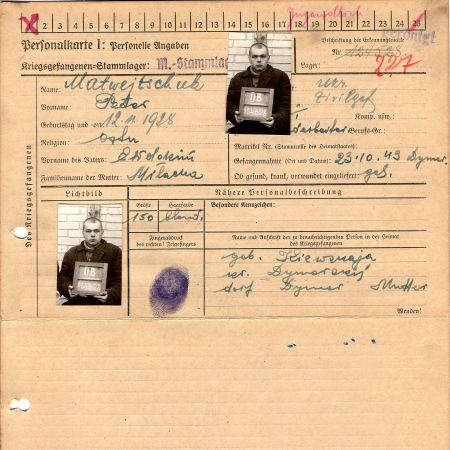 X 2 3 4 5 6 7 8 9 10 11 12 13 14 15 16 17 18 19 20 21 22 23 24 25
Personalkarte I: Personelle Angaben
Beschriftung der Erkennungsmarke
Nr.
Kriegsgefangenen-Stammlager: M.-Stammlag
Lager:
227
Des Kriegsgefangenen
Name: Matwejtschuk
Vorname: Peter
Geburtstag und -ort: 12. 1928
Religion: Ostn
Vorname des Vaters:
Familienname der Mutter:
Ukr.
Zivilgef
Komp. usw.:
Berufs-Gr.:
Matrikel Nr. (Stammrolle des Heimatstaates):
Gefangennahme (Ort und Datum): 23.10.43 Dymer.
Ob gesund, krank, verwundet eingeliefert: ges.
Lichtbild
Nähere Personalbeschreibung
Größe
Haarfarbe
Besondere Kennzeichen:
150
blond
118
Fingerabdruck
des rechten! Zeigefingers
Name und Anschrift der zu benachrichtigenden Person in der Heimat
des Kriegsgefangenen
geb. Kiewskaja
Dymerskij
dorf Dymer Mutter
Wenden!